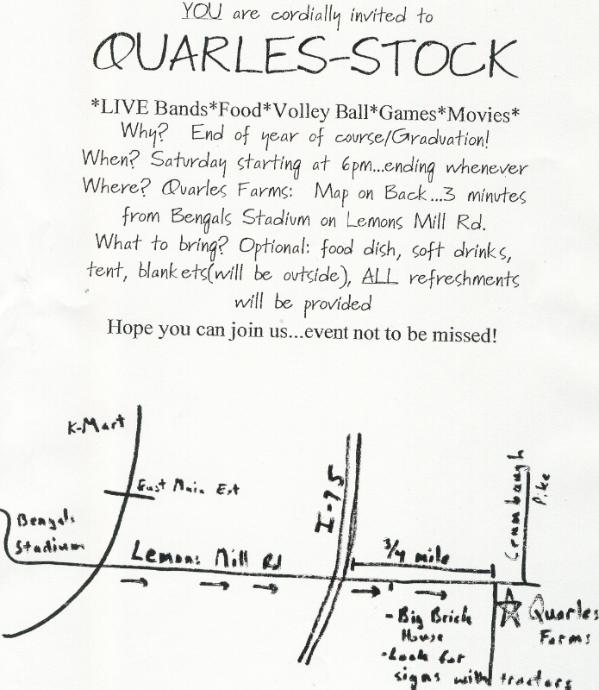 YOU are cordially invited to
QUARLES-STOCK
*LIVE Bands*Food*Volley Ball*Games*Movies*
Why? End of year of course/Graduation!
When? Saturday starting at 6pm...ending whenever
Where? Quarles Farms: Map on Back...3 minutes
from Bengals Stadium on Lemons Mill Rd.
What to bring? Optional: food dish, soft drinks,
tent, blankets(will be outside), ALL refreshments
will be provided
Hope you can join us...event not to be missed!
K-Mart
East Main Ext
I-75
Crumbaugh
Pike
Bengals
Stadium
Lemons Mill Rd
3/4 mile
- Big Brick
House
- Look for
signs with tractors
Quarles
Farms